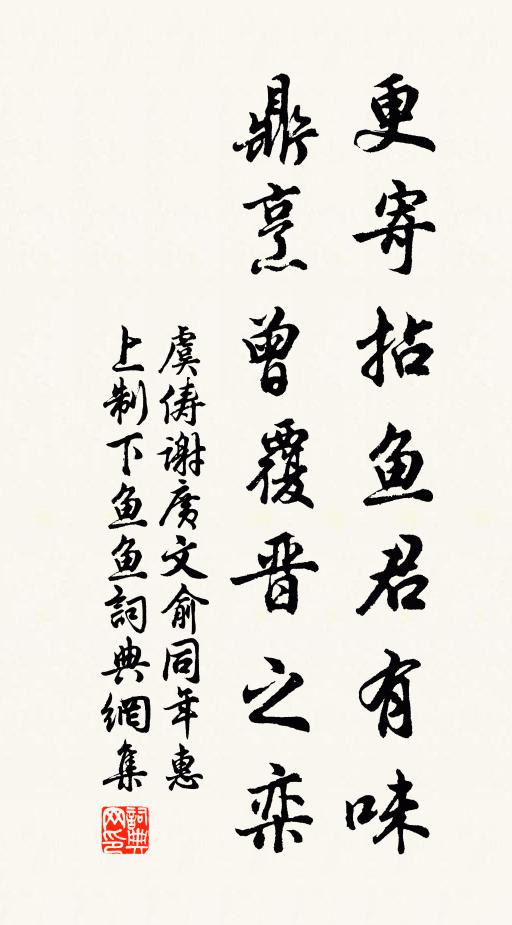 更寄拈鱼君有味
鼎烹曾覆晋之奕
虞俦谢廣文俞同年惠
上制下鱼鱼詞典網集
詞典網印